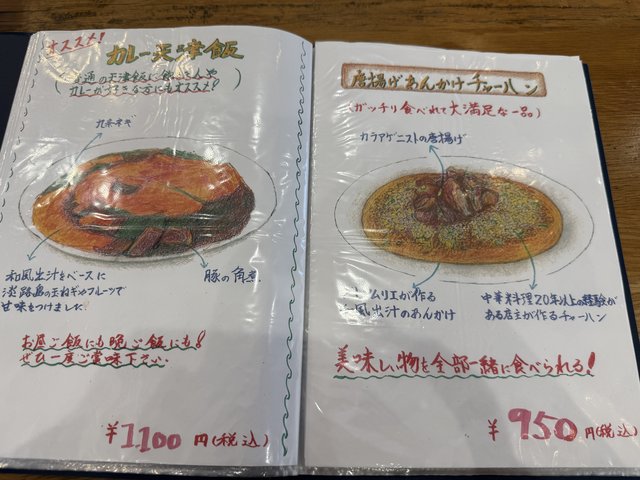 オススメ!
カレー天津飯
普通の天津飯に飽きた人や
カレーが大好きな方にもオススメ!
九条ネギ
和風出汁をベースに
淡路島の玉ねぎやフルーツで
甘味をつけました
豚の角煮
お昼ご飯にも晩ご飯にも!
ぜひ一度ご賞味下さい
¥1,100円(税込)
唐揚げあんかけチャーハン
(ガッツリ食べれて大満足な一品)
カラアゲニストの唐揚げ
ムリエが作る
風出汁のあんかけ
中華料理20年以上の経験が
ある店主が作るチャーハン
美味しい物を全部一緒に食べられる!
¥950円(税込)